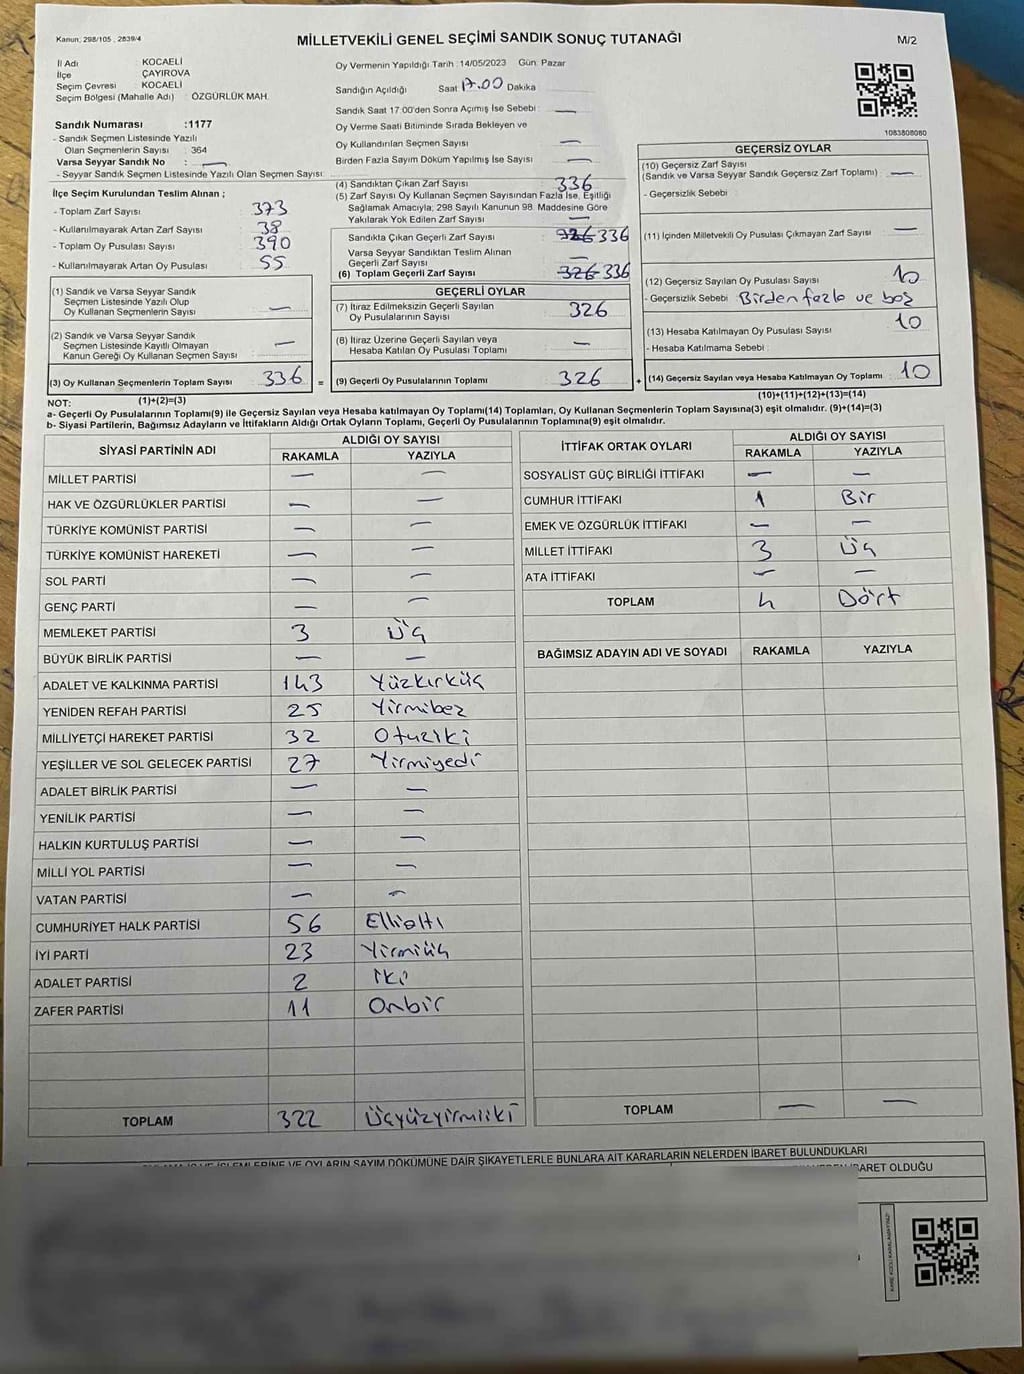 Kanun; 298/105 , 2839/4
MİLLETVEKİLİ GENEL SEÇİMİ SANDIK SONUÇ TUTANAĞI
M/2
İl Adı : KOCAELİ
İlçe : ÇAYIROVA
Seçim Çevresi : KOCAELİ
Seçim Bölgesi (Mahalle Adı) : ÖZGÜRLÜK MAH.
Sandık Numarası :1177
- Sandık Seçmen Listesinde Yazılı
Olan Seçmenlerin Sayısı : 364
Varsa Seyyar Sandık No : —
- Seyyar Sandık Seçmen Listesinde Yazılı Olan Seçmen Sayısı:
Oy Vermenin Yapıldığı Tarih :14/05/2023 Gün: Pazar
Sandığın Açıldığı Saat 17.00 Dakika
Sandık Saat 17:00'den Sonra Açımış İse Sebebi : —
Oy Verme Saati Bitiminde Sırada Bekleyen ve
Oy Kullandırılan Seçmen Sayısı : —
Birden Fazla Sayım Döküm Yapılmış İse Sayısı : —
1083808080
İlçe Seçim Kurulundan Teslim Alınan ;
- Toplam Zarf Sayısı : 373
- Kullanılmayarak Artan Zarf Sayısı : 38
- Toplam Oy Pusulası Sayısı : 390
- Kullanılmayarak Artan Oy Pusulası : 55
(1) Sandık ve Varsa Seyyar Sandık
Seçmen Listesinde Yazılı Olup
Oy Kullanan Seçmenlerin Sayısı : —
(2) Sandık ve Varsa Seyyar Sandık
Seçmen Listesinde Kayıtlı Olmayan
Kanun Gereği Oy Kullanan Seçmen Sayısı : —
(3) Oy Kullanan Seçmenlerin Toplam Sayısı : 336 =
(4) Sandıktan Çıkan Zarf Sayısı : 336
(5) Zarf Sayısı Oy Kullanan Seçmen Sayısından Fazla İse, Eşitliği
Sağlamak Amacıyla; 298 Sayılı Kanunun 98. Maddesine Göre
Yakılarak Yok Edilen Zarf Sayısı : —
Sandıkta Çıkan Geçerli Zarf Sayısı : 326 336
Varsa Seyyar Sandıktan Teslim Alınan
Geçerli Zarf Sayısı : —
(6) Toplam Geçerli Zarf Sayısı : 326 336
GEÇERLİ OYLAR
(7) İtiraz Edilmeksizin Geçerli Sayılan
Oy Pusulalarının Sayısı : 326
(8) İtiraz Üzerine Geçerli Sayılan veya
Hesaba Katılan Oy Pusulası Toplamı : —
(9) Geçerli Oy Pusulalarının Toplamı : 326 +
GEÇERSİZ OYLAR
(10) Geçersiz Zarf Sayısı
(Sandık ve Varsa Seyyar Sandık Geçersiz Zarf Toplamı) : —
- Geçersizlik Sebebi :
(11) İçinden Milletvekili Oy Pusulası Çıkmayan Zarf Sayısı : —
(12) Geçersiz Sayılan Oy Pusulası Sayısı : 10
- Geçersizlik Sebebi : Birden fazla ve boş
(13) Hesaba Katılmayan Oy Pusulası Sayısı : 10
- Hesaba Katılmama Sebebi :
(14) Geçersiz Sayılan veya Hesaba Katılmayan Oy Toplamı : 10
NOT: (1)+(2)=(3)
(10)+(11)+(12)+(13)=(14)
a- Geçerli Oy Pusulalarının Toplamı(9) ile Geçersiz Sayılan veya Hesaba katılmayan Oy Toplamı(14) Toplamları, Oy Kullanan Seçmenlerin Toplam Sayısına(3) eşit olmalıdır. (9)+(14)=(3)
b- Siyasi Partilerin, Bağımsız Adayların ve İttifakların Aldığı Ortak Oyların Toplamı, Geçerli Oy Pusulalarının Toplamına(9) eşit olmalıdır.
SİYASİ PARTİNİN ADI ALDIĞI OY SAYISI
RAKAMLA YAZIYLA
MİLLET PARTİSİ — —
HAK VE ÖZGÜRLÜKLER PARTİSİ — —
TÜRKİYE KOMÜNİST PARTİSİ — —
TÜRKİYE KOMÜNİST HAREKETİ — —
SOL PARTİ — —
GENÇ PARTİ — —
MEMLEKET PARTİSİ 3 Üç
BÜYÜK BİRLİK PARTİSİ — —
ADALET VE KALKINMA PARTİSİ 143 Yüzkırküç
YENİDEN REFAH PARTİSİ 25 Yirmibeş
MİLLİYETÇİ HAREKET PARTİSİ 32 Otuziki
YEŞİLLER VE SOL GELECEK PARTİSİ 27 Yirmiyedi
ADALET BİRLİK PARTİSİ — —
YENİLİK PARTİSİ — —
HALKIN KURTULUŞ PARTİSİ — —
MİLLİ YOL PARTİSİ — —
VATAN PARTİSİ — —
CUMHURİYET HALK PARTİSİ 56 Ellialtı
İYİ PARTİ 23 Yirmiüç
ADALET PARTİSİ 2 İki
ZAFER PARTİSİ 11 Onbir
TOPLAM 322 Üçyüzyirmiiki
İTTİFAK ORTAK OYLARI ALDIĞI OY SAYISI
RAKAMLA YAZIYLA
SOSYALİST GÜÇ BİRLİĞİ İTTİFAKI — —
CUMHUR İTTİFAKI 1 Bir
EMEK VE ÖZGÜRLÜK İTTİFAKI — —
MİLLET İTTİFAKI 3 Üç
ATA İTTİFAKI — —
TOPLAM 4 Dört
BAĞIMSIZ ADAYIN ADI VE SOYADI RAKAMLA YAZIYLA
TOPLAM — —
VE OYLARIN SAYIM DÖKÜMÜNE DAİR ŞİKAYETLERLE BUNLARA AİT KARARLARIN NELERDEN İBARET BULUNDUKLARI
İBARET OLDUĞU